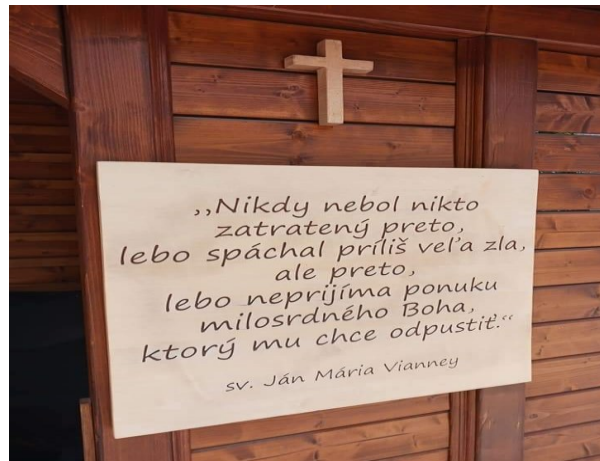 ,,Nikdy nebol nikto
zatratený preto,
lebo spáchal príliš veľa zla,
ale preto,
lebo neprijíma ponuku
milosrdného Boha,
ktorý mu chce odpustiť.“
sv. Ján Mária Vianney